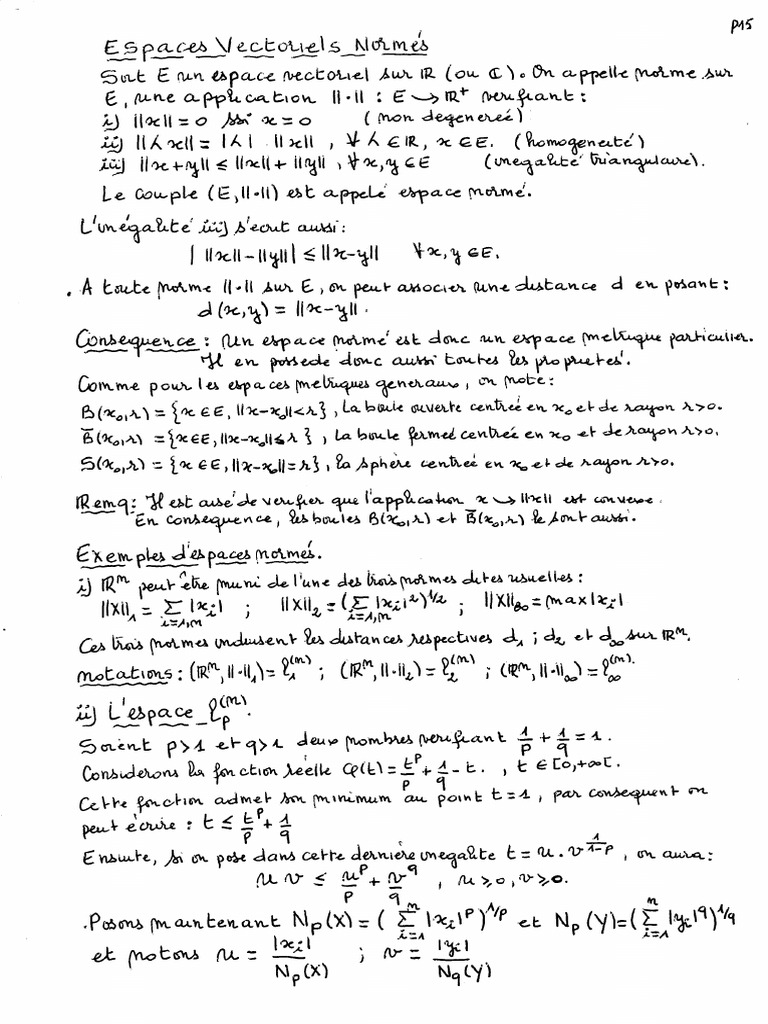 p15
Espaces Vectoriels Normés
Soit E un espace vectoriel sur ℝ (ou ℂ). On appelle norme sur
E, une application ||·|| : E → ℝ⁺ verifiant :
i) ||x|| = 0 ssi x = 0 (non degenereé)
ii) ||λx|| = |λ| ||x||, ∀ λ ∈ ℝ, x ∈ E. (homogeneité)
iii) ||x+y|| ≤ ||x|| + ||y||, ∀ x, y ∈ E (inegalité triangulaire).
Le couple (E, ||·||) est appelé espace normé.
L'inégalité iii) s'ecrit aussi :
| ||x|| - ||y|| | ≤ ||x-y|| ∀ x, y ∈ E.
. A toute norme ||·|| sur E, on peut associer une distance d en posant :
d(x,y) = ||x-y||.
Consequence : Un espace normé est donc un espace metrique particulier.
Il en possede donc aussi toutes les proprietés.
Comme pour les espaces metriques generaux, on note :
B(x₀,r) = {x ∈ E, ||x-x₀|| < r}, la boule ouverte centrée en x₀ et de rayon r>0.
B̄(x₀,r) = {x ∈ E, ||x-x₀|| ≤ r}, la boule fermeé centrée en x₀ et de rayon r>0.
S(x₀,r) = {x ∈ E, ||x-x₀|| = r}, la sphère centrée en x₀ et de rayon r>0.
Remq : Il est aisé de verifier que l'application x → ||x|| est convexe.
En consequence, les boules B(x₀,r) et B̄(x₀,r) le sont aussi.
Exemples d'espaces normés.
i) ℝⁿ peut être muni de l'une des trois normes dites usuelles :
||X||₁ = Σ_{i=1,n} |xᵢ| ; ||X||₂ = (Σ_{i=1,n} |xᵢ|²)^{1/2} ; ||X||_∞ = max|xᵢ|
Ces trois normes induisent les distances respectives d₁ ; d₂ et d_∞ sur ℝⁿ.
notations : (ℝⁿ, ||·||₁) = ℓ₁^{(n)} ; (ℝⁿ, ||·||₂) = ℓ₂^{(n)} ; (ℝⁿ, ||·||_∞) = ℓ_∞^{(n)}.
ii) L'espace ℓ_p^{(n)}.
Soient p>1 et q>1 deux nombres verifiant 1/p + 1/q = 1.
Considerons la fonction réelle φ(t) = t^p/p + 1/q - t. , t ∈ [0,+∞[.
Cette fonction admet son minimum au point t=1, par consequent on
peut écrire : t ≤ t^p/p + 1/q
Ensuite, si on pose dans cette dernière inegalité t = u · v^{1/(1-p)}, on aura :
u v ≤ u^p/p + v^q/q , u ≥ 0, v ≥ 0.
. Posons maintenant N_p(X) = (Σ_{i=1}^{n} |xᵢ|^p)^{1/p} et N_p(Y) = (Σ_{i=1}^{n} |yᵢ|^q)^{1/q}
et notons u = |xᵢ|/N_p(X) ; v = |yᵢ|/N_q(Y)